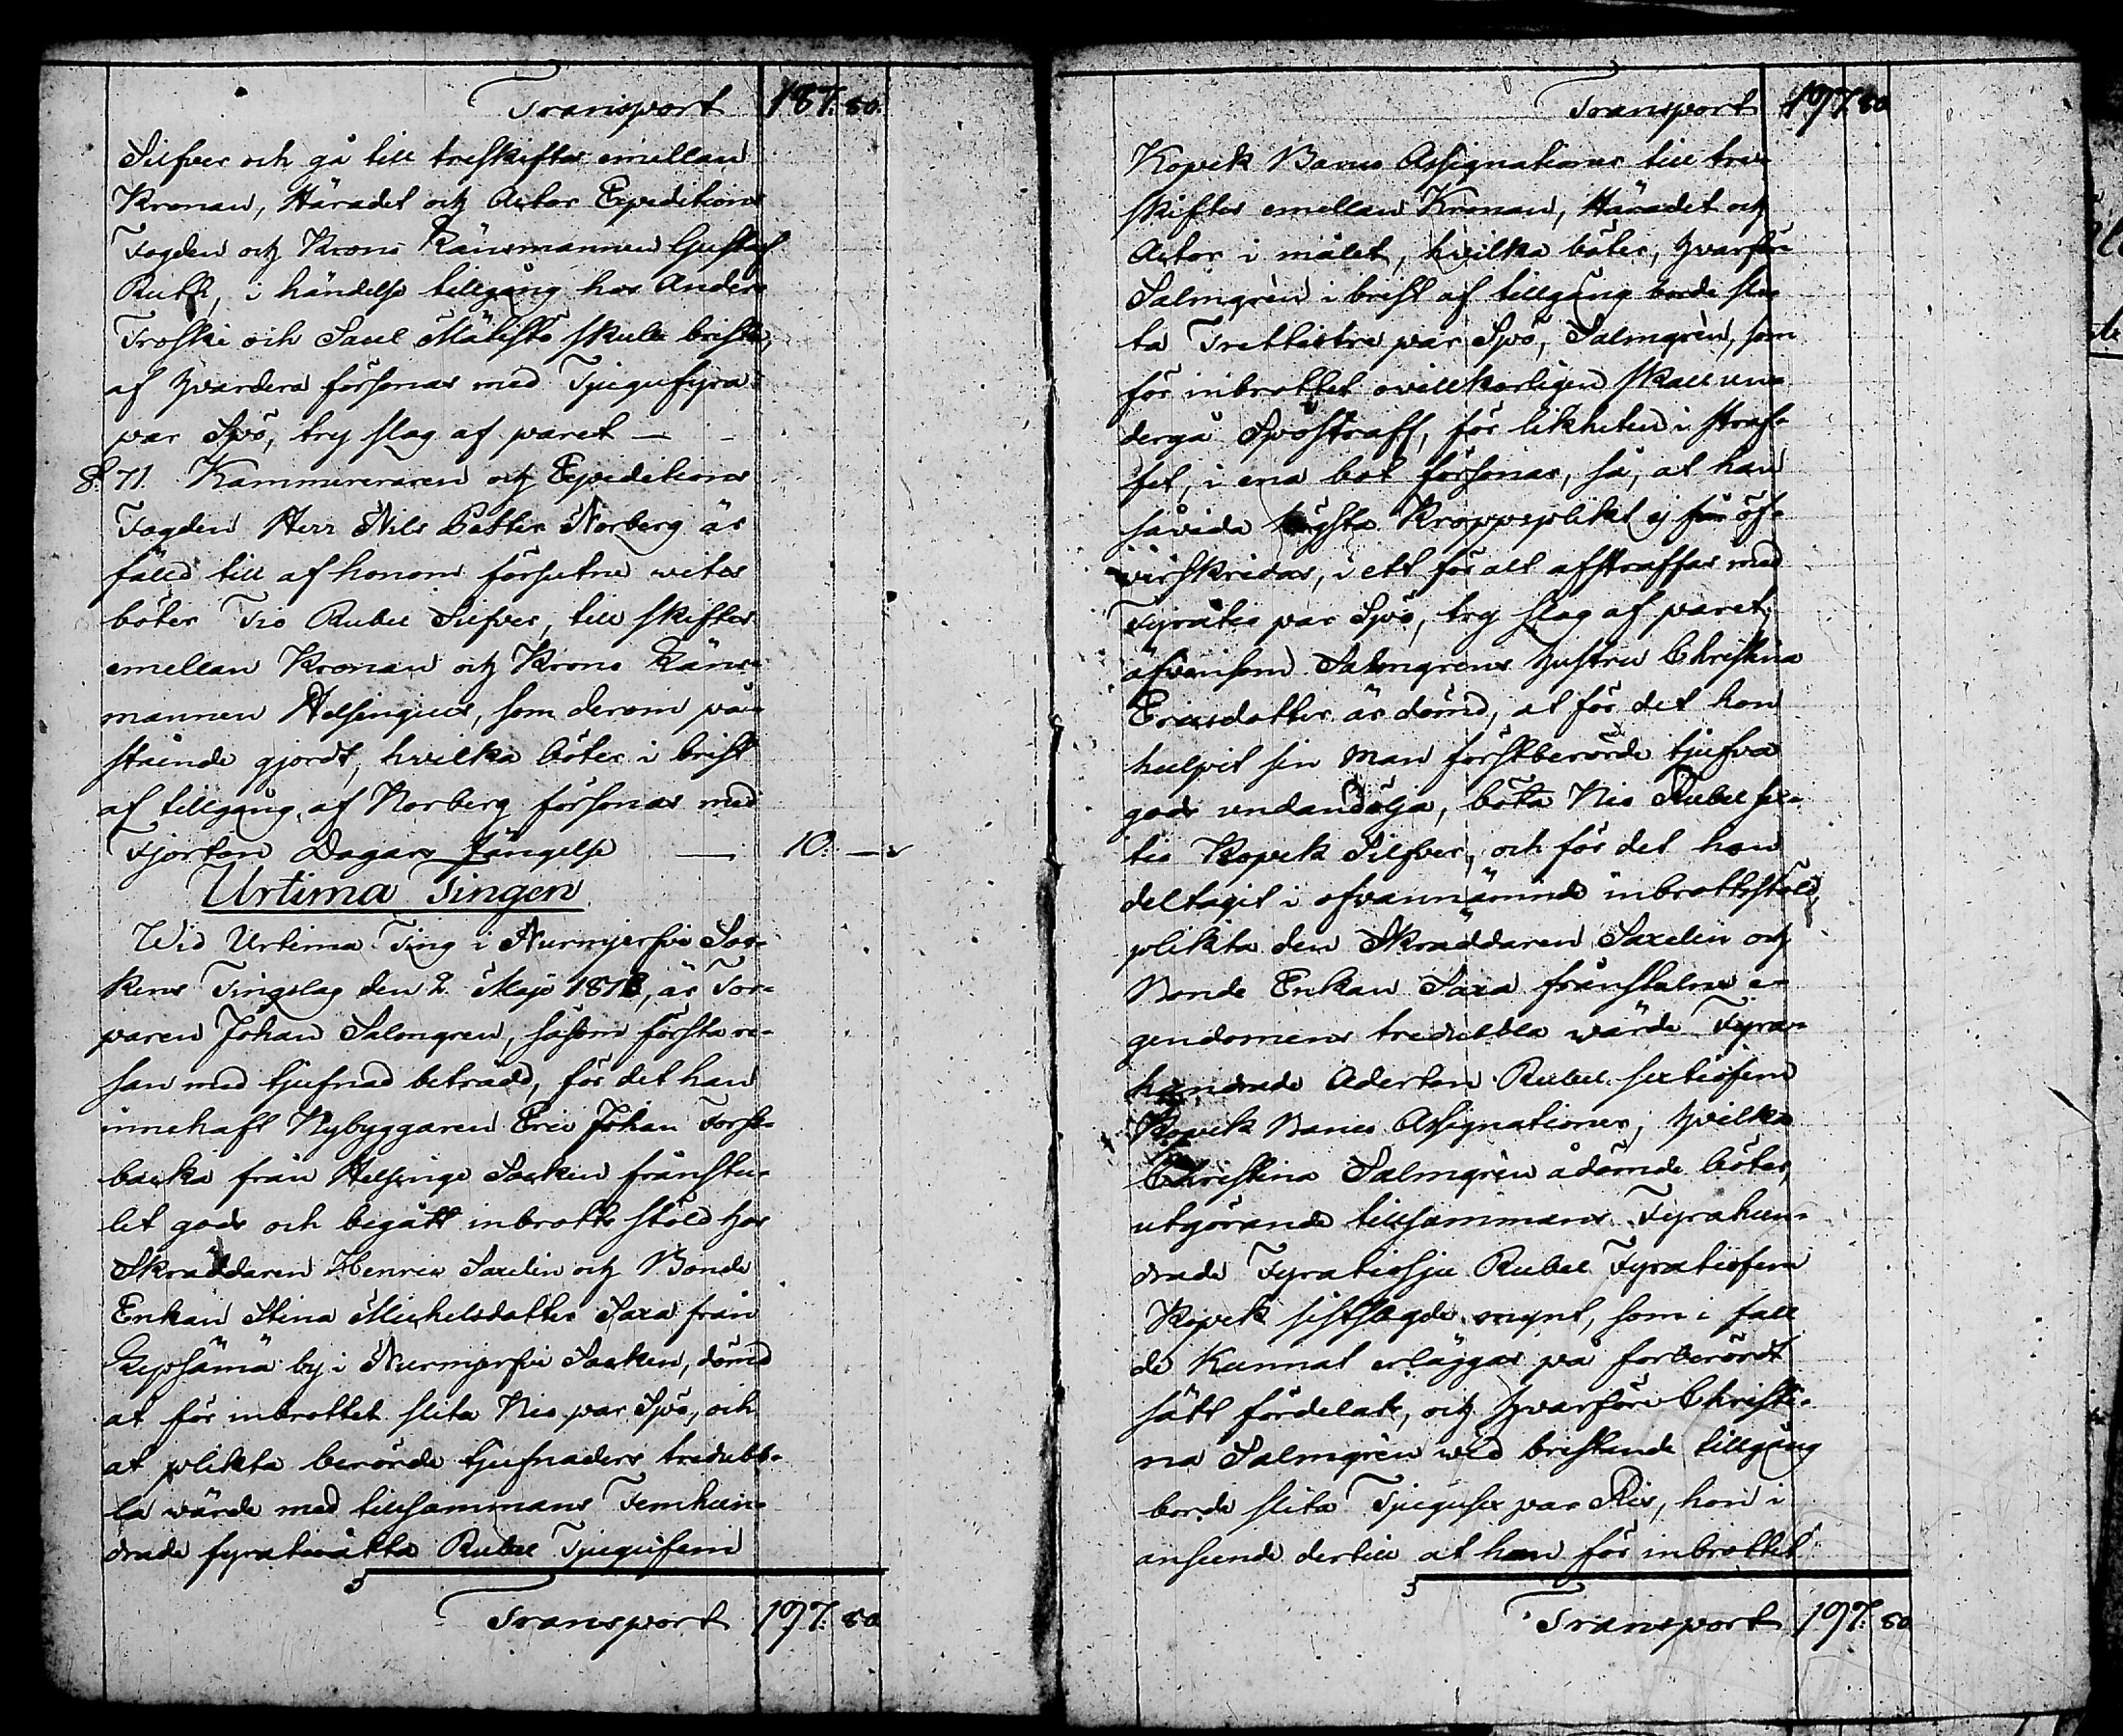 Transport 187. 80.
Silfver och gå till treskiftes emellan
Kronan, Häradet och Actor Expeditions
Fogden och Krono Länsmannen Gustaf
Ruth, i händelse tillgång hos Anders
Troski och Saul Mätistö skulle brista,
af hvardera försonas med Tjugufyra
par Spö, try slag af paret —
§. 71. Kammereraren och Expeditions
Fogden Herr Nils Petter Norberg är
fälld till af honom försutne vites
böter Tio Rubel Silfver, till skiftes
emellan Kronan och Krono Läns-
mannen Helsingius, som derom på-
stående gjordt, hvilka böter i brist
af tillgång, af Norberg försonas med
Fjorton Dagars fängelse — 10. —
Urtima Tingen
Wid Urtima Ting i Nurmijerfvi Soc-
kens Tingslag den 2. Majo 181, är Tor-
paren Johan Salmgren, såsom första re-
san med tjufnad beträdd, för det han
innehaft Nybyggaren Eric Johan Forss-
backa från Helsinge Socken frånstu-
let gods och begått inbrotts stöld hos
Skräddaren Henric Saxelin och Bonde
Enkan Stina Michelsdotter Saxa från
Lepsämä by i Nurmijerfvi Socken, dömd
at för inbrottet slita Nio par Spö, och
at plikta berörde tjufnaders tredubb-
la wärde med tillsammans Femhun-
drade fyratioåtta Rubel Tjugufem
Transport 197. 80
Transport 197. 80
Kopek Banco Assignationer till tre-
skiftes emellan Kronan, Häradet och
Actor i målet, hvilka böter, hvarför
Salmgrèn i brist af tillgång borde sli-
ta Trettiotre par Spö, Salmgrèn, som
för inbrottet ovillkorligen skall un-
dergå Spöstraff, för likheten i straf-
fet, i ena bot försonar, så, at han
såvida högsta Kroppsplikt ej får öf-
verskridas, i ett för allt afstraffas med
Fyratio par Spö, try slag af paret,
äfvensom Salmgrens hustru Christina
Ericsdotter är dömd, at för det hon
hulpit sin Man förstberörde tjufva
gods undandölja, böta Nio Rubel sex-
tio Kopek Silfver, och för det hon
deltagit i ofvannämnde inbrottsstöld,
plikta den Skräddaren Saxelin och
Bonde Enkan Saxa frånstulna e-
gendomens tredubbla wärde Fyra-
hundrade Aderton Rubel sextiofem
Kopek Banco Assignationer; hvilka
Christina Salmgrèn ådömde böter,
utgörande tillsammans Fyrahun-
drade Fyratiosju Rubel Fyratiofem
Kopek sistsagde mynt, som i fall
de Kunnat erläggas på förberördt
sätt fördelats, och hvarföre Christi-
na Salmgrèn wid bristande tillgång
borde slita Tjugusex par Ris, hon i
anseende dertill at hon för inbrottet
Transport 197. 80